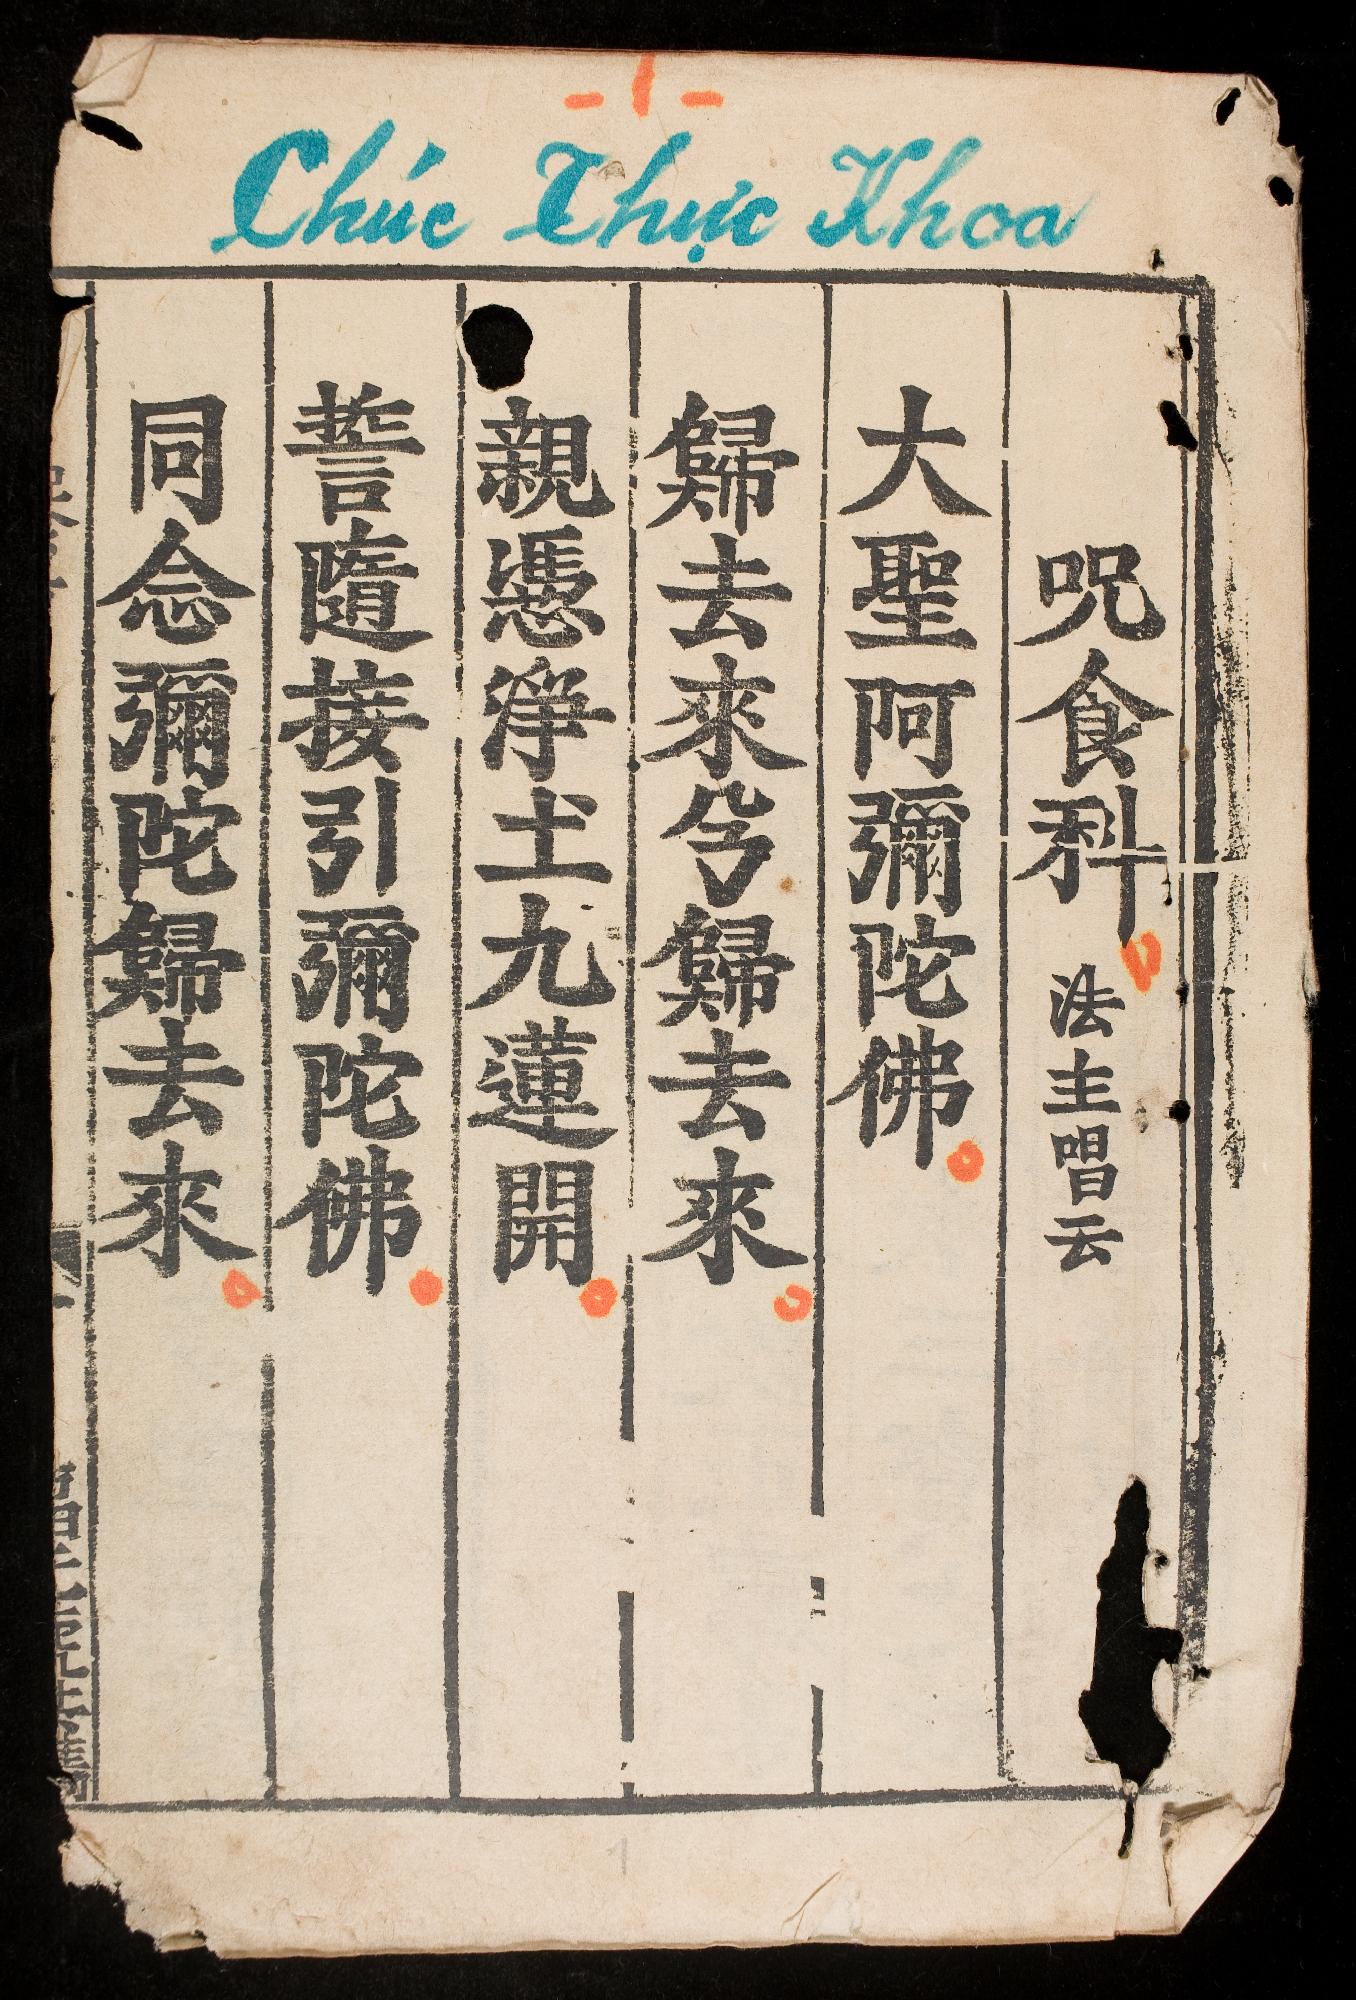 - 1 -
Chúc Thực Khoa
呪食科 法主唱云
大聖阿彌陀佛
歸去來兮歸去來
親憑淨土九蓮開
誓隨接引彌陀佛
同念彌陀歸去來
1